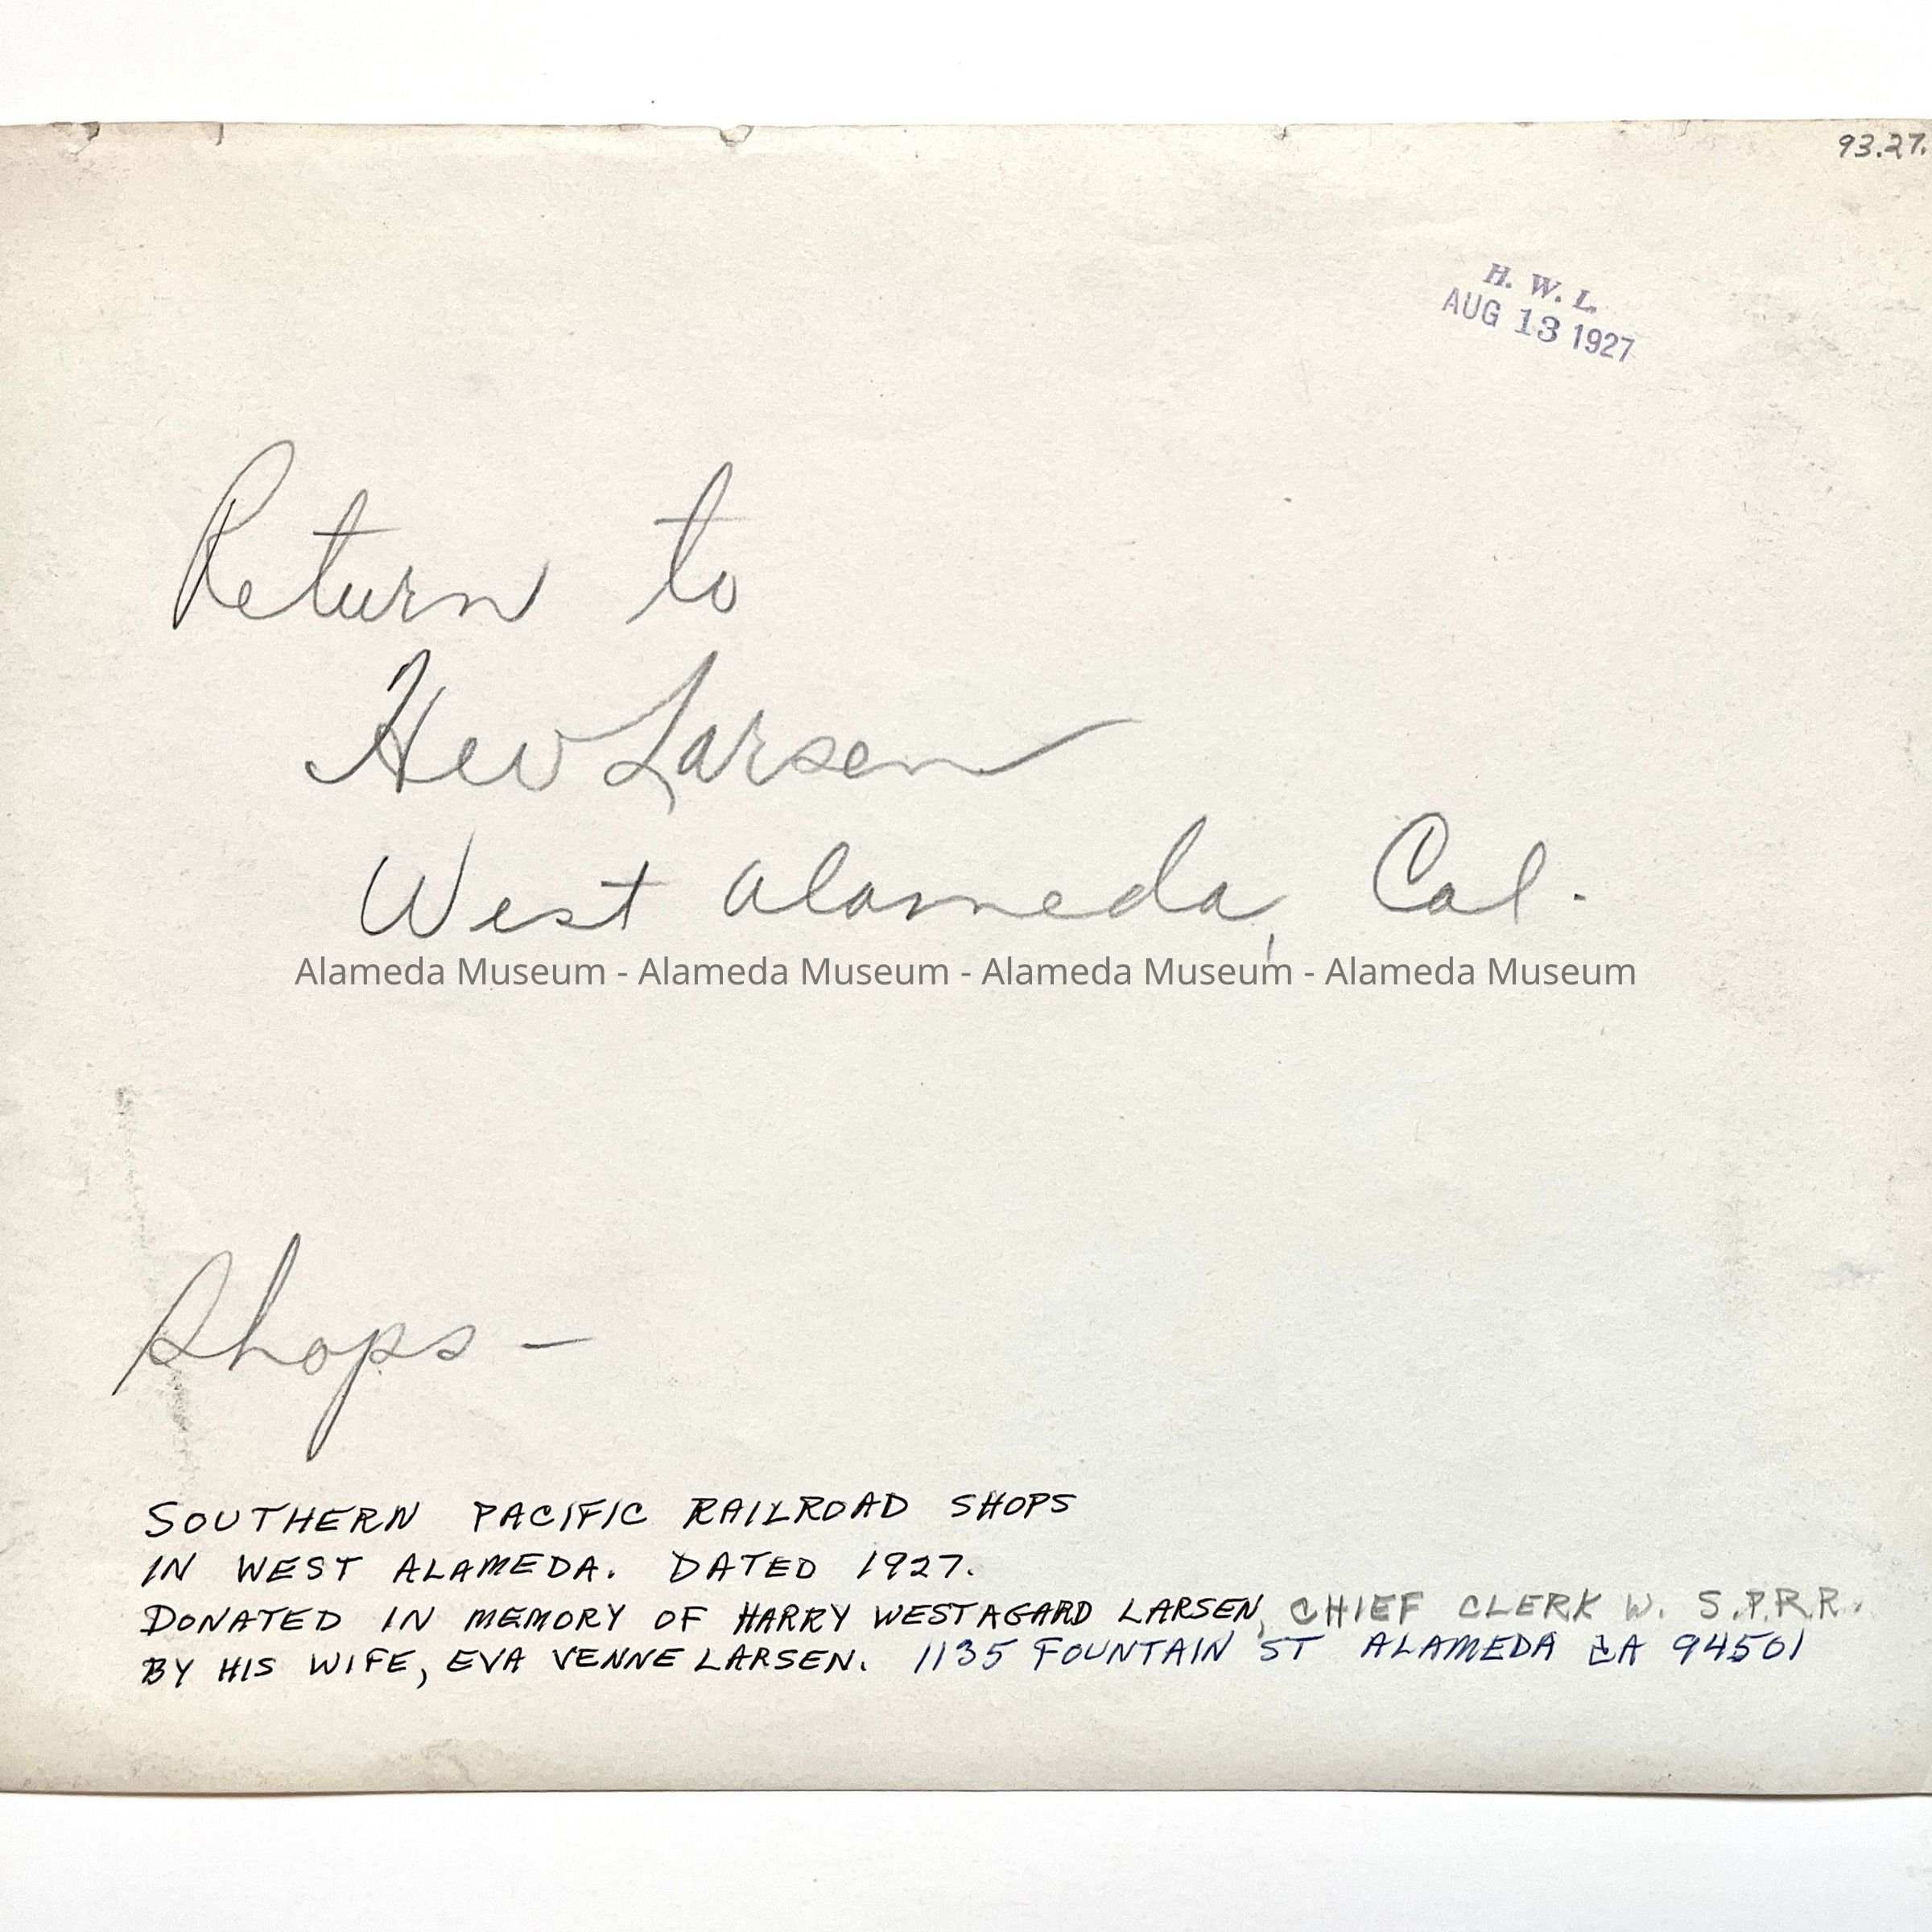 93.27.
H. W. L.
AUG 13 1927
Return to
HW Larsen
West Alameda, Cal.
Alameda Museum - Alameda Museum - Alameda Museum - Alameda Museum
Shops -
SOUTHERN PACIFIC RAILROAD SHOPS
IN WEST ALAMEDA. DATED 1927.
DONATED IN MEMORY OF HARRY WESTAGARD LARSEN, CHIEF CLERK W. S.P.R.R.
BY HIS WIFE, EVA VENNE LARSEN. 1135 FOUNTAIN ST ALAMEDA CA 94501